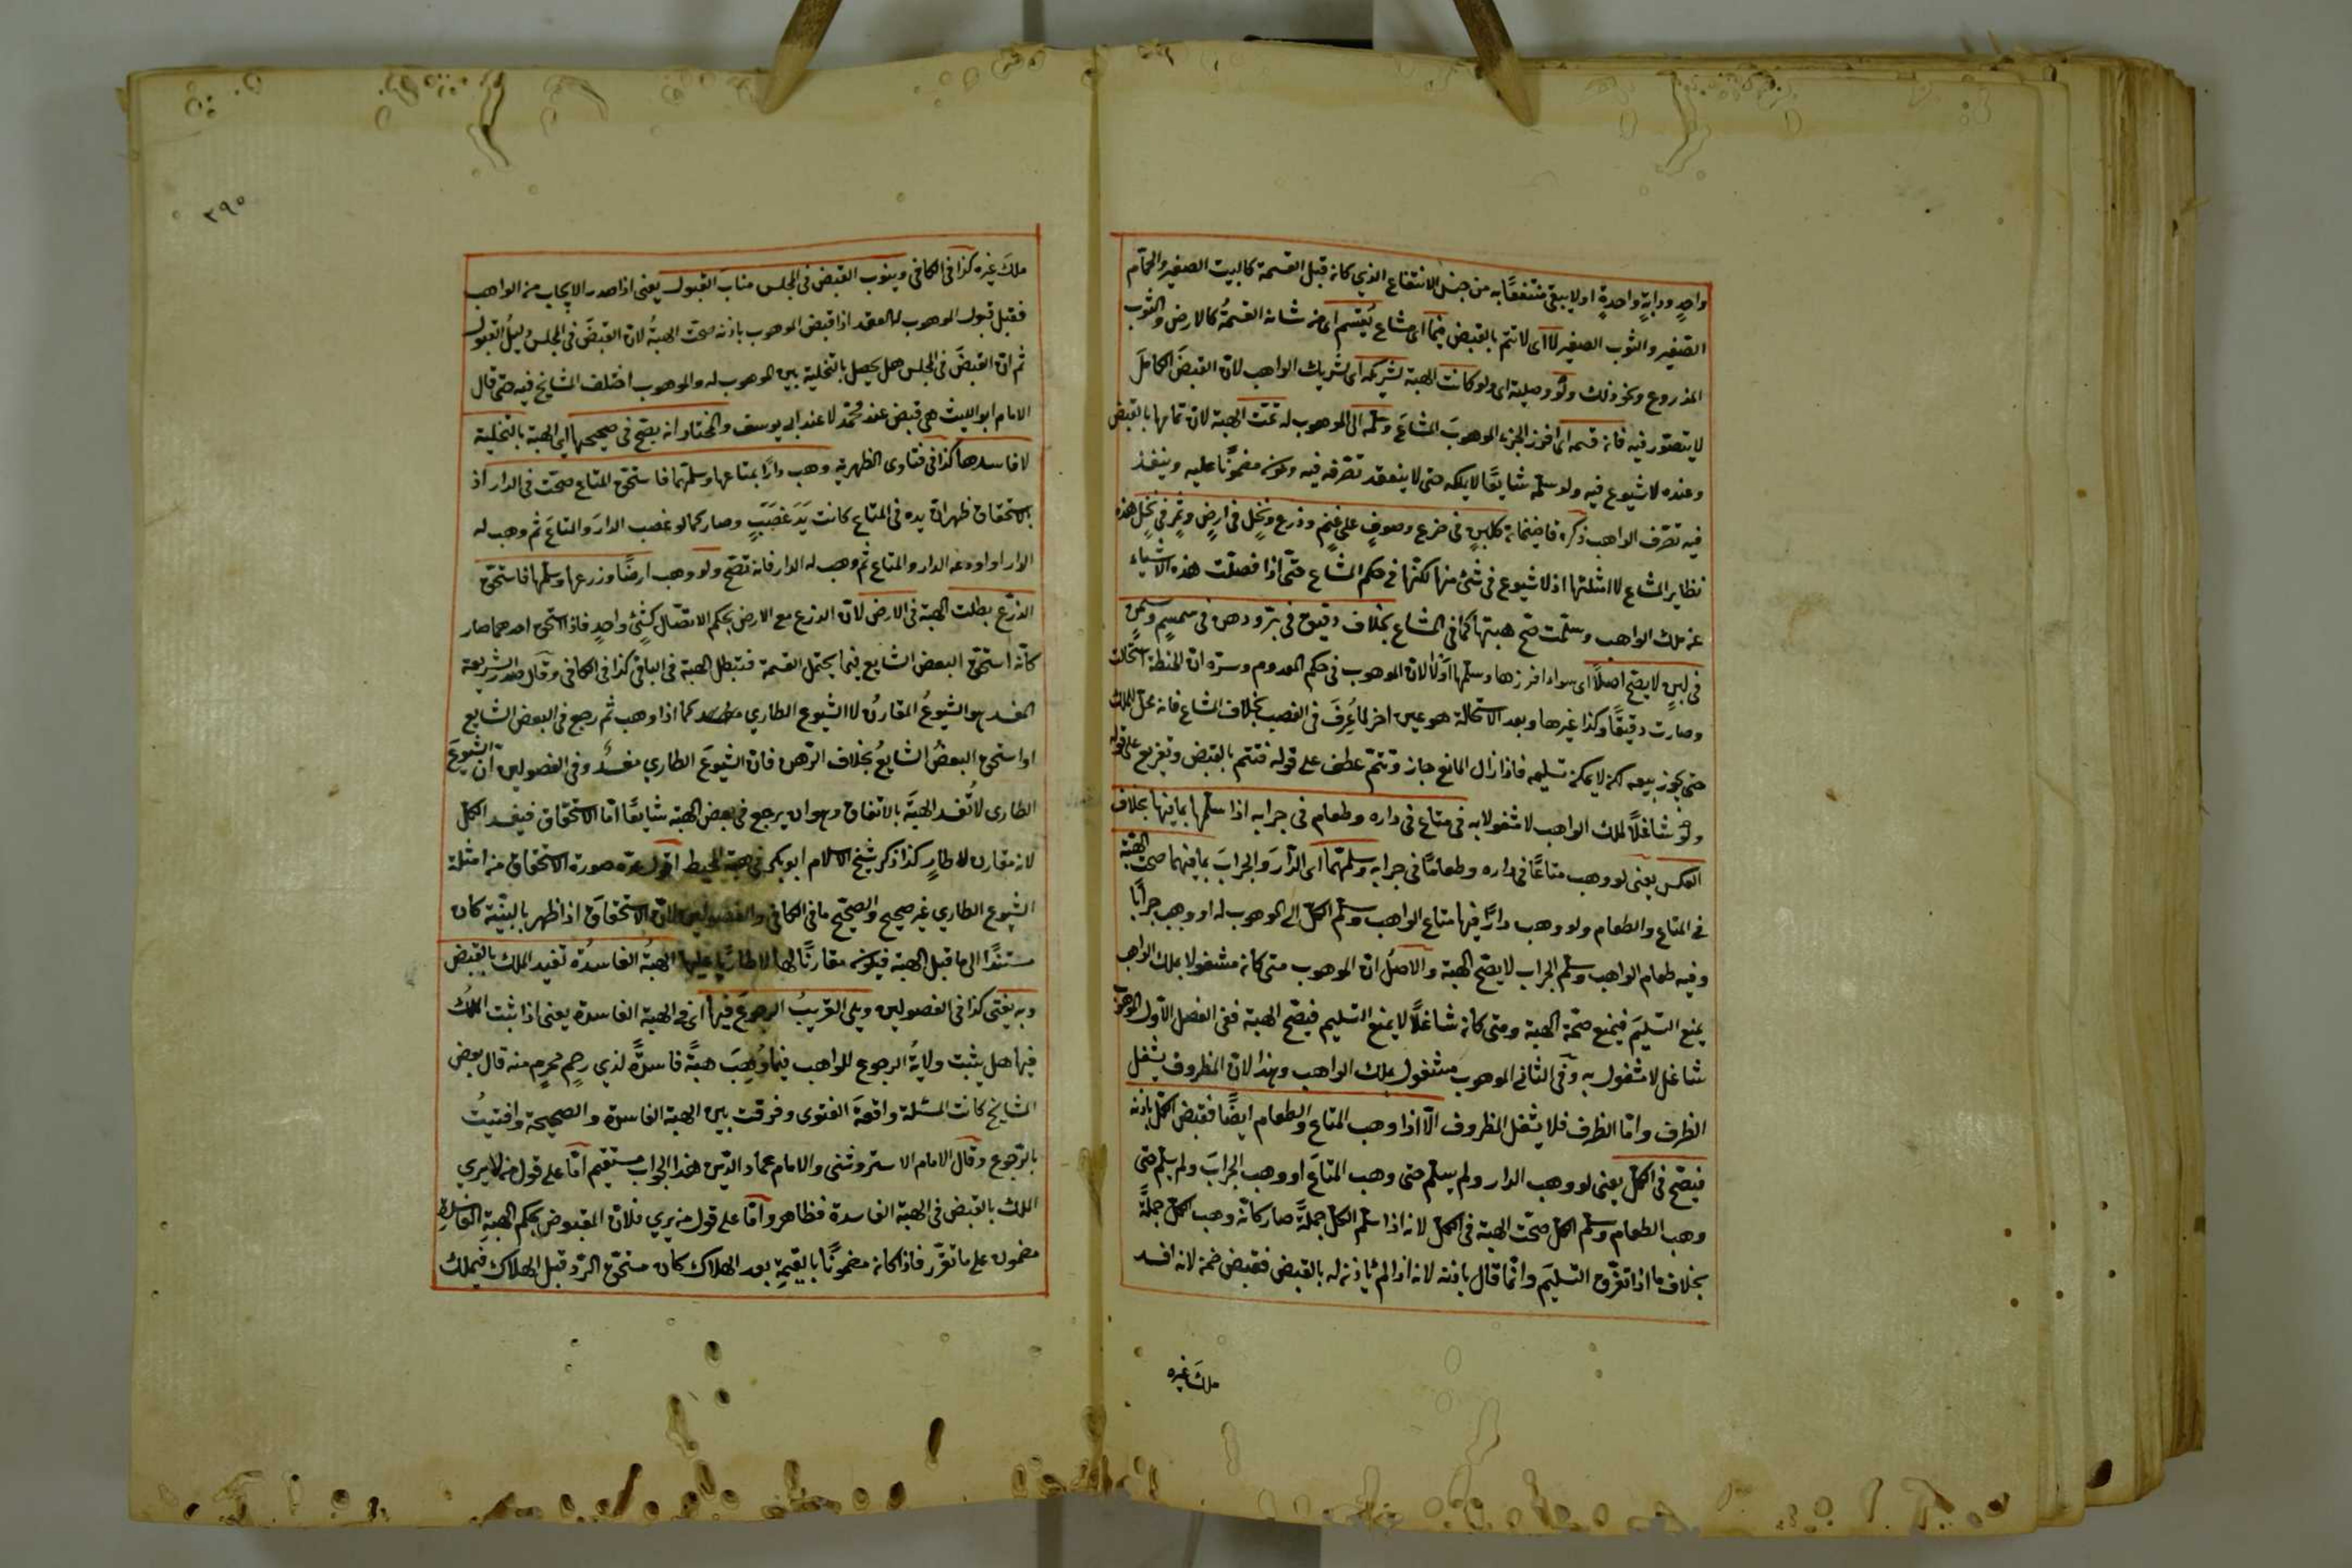 واحدٍ ودابةٍ واحدةٍ او لا يبقى منتفعًا به من جنس الانتفاع الذي كان قبل القسمة كالبيت الصغير والحمّام
الصّغير والثوب الصغير لا اى لا تتم بالقبض فيما اى مشاع يُقسم اى من شانه القسمةُ كالارض والثوب
المذروع ونحو ذلك ولو وصلية اى ولو كانت الهبة لشريكه اى لشريك الواهب لان القبضَ الكاملَ
لا يتصوّر فيه فان قسمه اى افرز الجزء الموهوبَ المشاعَ وسلّمه الى الموهوب له تمّت الهبة لان تمامها بالقبض
وعنده لا شيوع فيه ولو سلّمه شايعًا لا يملكه حتى لا ينفقد تصرّفه فيه ويكون مضمونًا عليه وينفذ
فيه تصرّف الواهب ذكره قاضيخان كلبنٍ فى ضرع وصوفٍ على غنمٍ وزرع ونخلٍ فى ارضٍ وتمرٍ فى نخلٍ هذه
نظاير المشاع لا امثلتها اذ لا شيوع فى شئ منها لكنّها فى حكم المشاع حتّى اذا فصلت هذه الاشياء
عن ملك الواهب وسلّمت صحّ هبتها كما فى المشاع بخلاف دقيق فى برّ ودهن فى سمسمٍ وسمنٍ
فى لبنٍ لا يصح اصلًا اى سواء افرزها وسلّمها اوّلا لان الموهوب فى حكم المعدوم وسرّه ان الحنطة استحالت
وصارت دقيقًا وكذا غيرها وبعد الاستحالة هو عين اخر لما عُرِفَ فى الغصب بخلاف المشاع فانه محل للملك
حتى يجوز بيعه لكن لا يمكن تسليمه فاذا زال المانع جاز وتتمّ عطف على قوله فتتم بالقبض وتفريع على قوله
ولو شاغلًا لملك الواهب لا مشغولا به فى متاع فى داره وطعام فى جرابه اذا سلّمها بما فيها بخلاف
العكس يعنى لو وهب متاعًا فى داره وطعامًا فى جرابه وسلّمهما اى الدّارَ والجرابَ بما فيهما صحت الهبة
فى المتاع والطعام ولو وهب دارًا فيها متاع الواهب وسلّم الكلّ الى الموهوب له او وهب جرابًا
وفيه طعام الواهب وسلّم الجراب لا يصحّ الهبة والاصلُ ان الموهوب متى كان مشغولا بملك الواهب
يمنع التسليمَ فيمنع صحّة الهبة ومتى كان شاغلًا لا يمنع التسليم فيصحّ الهبة ففى الفصل الاوّل الموهوبُ
شاغل لا مشغول به وفى الثانى الموهوب مشغول بملك الواهب وهذا لان المظروف يشغل
الظرف وامّا الظرف فلا يشغل المظروف الّا اذا وهب المتاع والطعام ايضًا فقبض الكلّ باذنه
فيصحّ فى الكلّ يعنى لو وهب الدار ولم يسلّم حتى وهب المتاعَ او وهب الجرابَ ولم يسلّم حتى
وهب الطعام وسلّم الكلّ صحّت الهبة فى الكلّ لانه اذا سلّم الكلّ جملةً صار كانّه وهب الكلّ جملةً
بخلاف ما اذا تفرّق التسليم وانّما قال باذنه لانه اذا لم يأذن له بالقبض فقبض ضمن لانه افسد
ملك غيره
٣٩٥
ملكَ غيره كذا فى الكافى وينوب القبض فى المجلس منابَ القبول يعنى اذا صدر الايجاب من الواهب
فقبل قبول الموهوب له العقد اذا قبض الموهوب باذنه صحّت الهبةُ لان القبضَ فى المجلس دليلُ القبول
ثم ان القبضَ فى المجلس هل يحصل بالتخلية بين الموهوب له والموهوب اختلف المشايخ فيه حتى قال
الامام ابو الليث هى قبض عند محمّد لا عند ابى يوسف والمختار انه يصحّ فى صحيحها اى الهبة بالتخلية
لا فاسدها كذا فى فتاوى الظهيرية وهب دارًا بمتاعها وسلّمها فاستحق المتاع صحّت فى الدار اذ
بالاستحقاق ظهر ان يده فى المتاع كانت يَدَ غصَبٍ وصار كما لو غصب الدارَ والمتاعَ ثم وهب له
الدار او اودعه الدار والمتاع ثم وهب له الدار فانه تصحّ ولو وهب ارضًا وزرعها وسلّمها فاستحق
الزرع بطلت الهبة فى الارض لانّ الزرع مع الارض بحكم الاتصال كشئٍ واحدٍ فاذا استحق احدهما صار
كانّه استحق البعض الشايع فيما يحتمل القسمة فتبطل الهبة فى الباقى كذا فى الكافى وقال صدر الشريعة
المفسد هو الشيوعُ المقارنُ لا الشيوع الطاري كما اذا وهب ثم رجع فى البعض الشايع
او استحق البعضُ الشايعُ بخلاف الرّهن فان الشيوعَ الطاري مفسدٌ وفى الفصولين انّ الشيوعَ
الطارى لا تُفسد الهبةَ بالاتفاق وهو ان يرجع فى بعض الهبة شايعًا امّا الاستحقاق فيفسد الكلّ
لانه مقارن لا طارٍ كذا ذكر شيخ الاسلام ابو بكر فى هبة المحيط اقول عدّه صورة الاستحقاق من امثلة
الشيوع الطاري غير صحيح والصحيح ما فى الكافى والفصولين لانّ الاستحقاق اذا ظهر بالبيّنة كان
مستندًا الى ما قبل الهبة فيكون مقارنًا لها لا طاريًا عليها الهبةُ الفاسدُة تفيد الملك بالقبض
وبه يفتى كذا فى الفصولين ويلى القريبُ الرجوعَ فيها اى فى الهبة الفاسدة يعنى اذا ثبت الملكُ
فيها هل يثبت ولايةُ الرجوع للواهب فيما وُهِبَ هبةً فاسدةً لذي رحِمٍ محرمٍ منه قال بعض
المشايخ كانت المسئلة واقعةَ الفتوى وفرقت بين الهبة الفاسدة والصحيحة وافتيتُ
بالرّجوع وقال الامام الاستروشنى والامام عماد الدّين هذا الجواب مستقيم امّا على قول من لا يري
الملك بالقبض فى الهبة الفاسدة فظاهر وامّا على قول من يري فلانّ المقبوض بحكم الهبةِ الفاسدة
مضمون على ما تقرّر فاذا كان مضمونًا بالقيمةِ بعد الهلاك كان مستحقّ الردّ قبل الهلاك فيملك